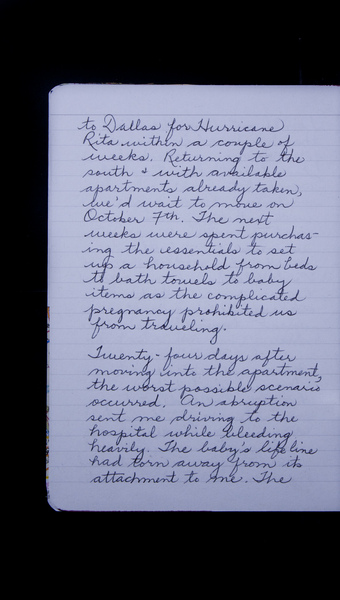 to Dallas for Hurricane
Rita within a couple of
weeks. Returning to the
south & with available
apartments already taken,
we'd wait to move on
October 7th. The next
weeks were spent purchas-
ing the essentials to set
up a household from beds
to bath towels to baby
items as the complicated
pregnancy prohibited us
from traveling.
Twenty-four days after
moving into the apartment,
the worst possible scenario
occurred. An abruption
sent me driving to the
hospital while bleeding
heavily. The baby's lifeline
had torn away from its
attachment to me. The